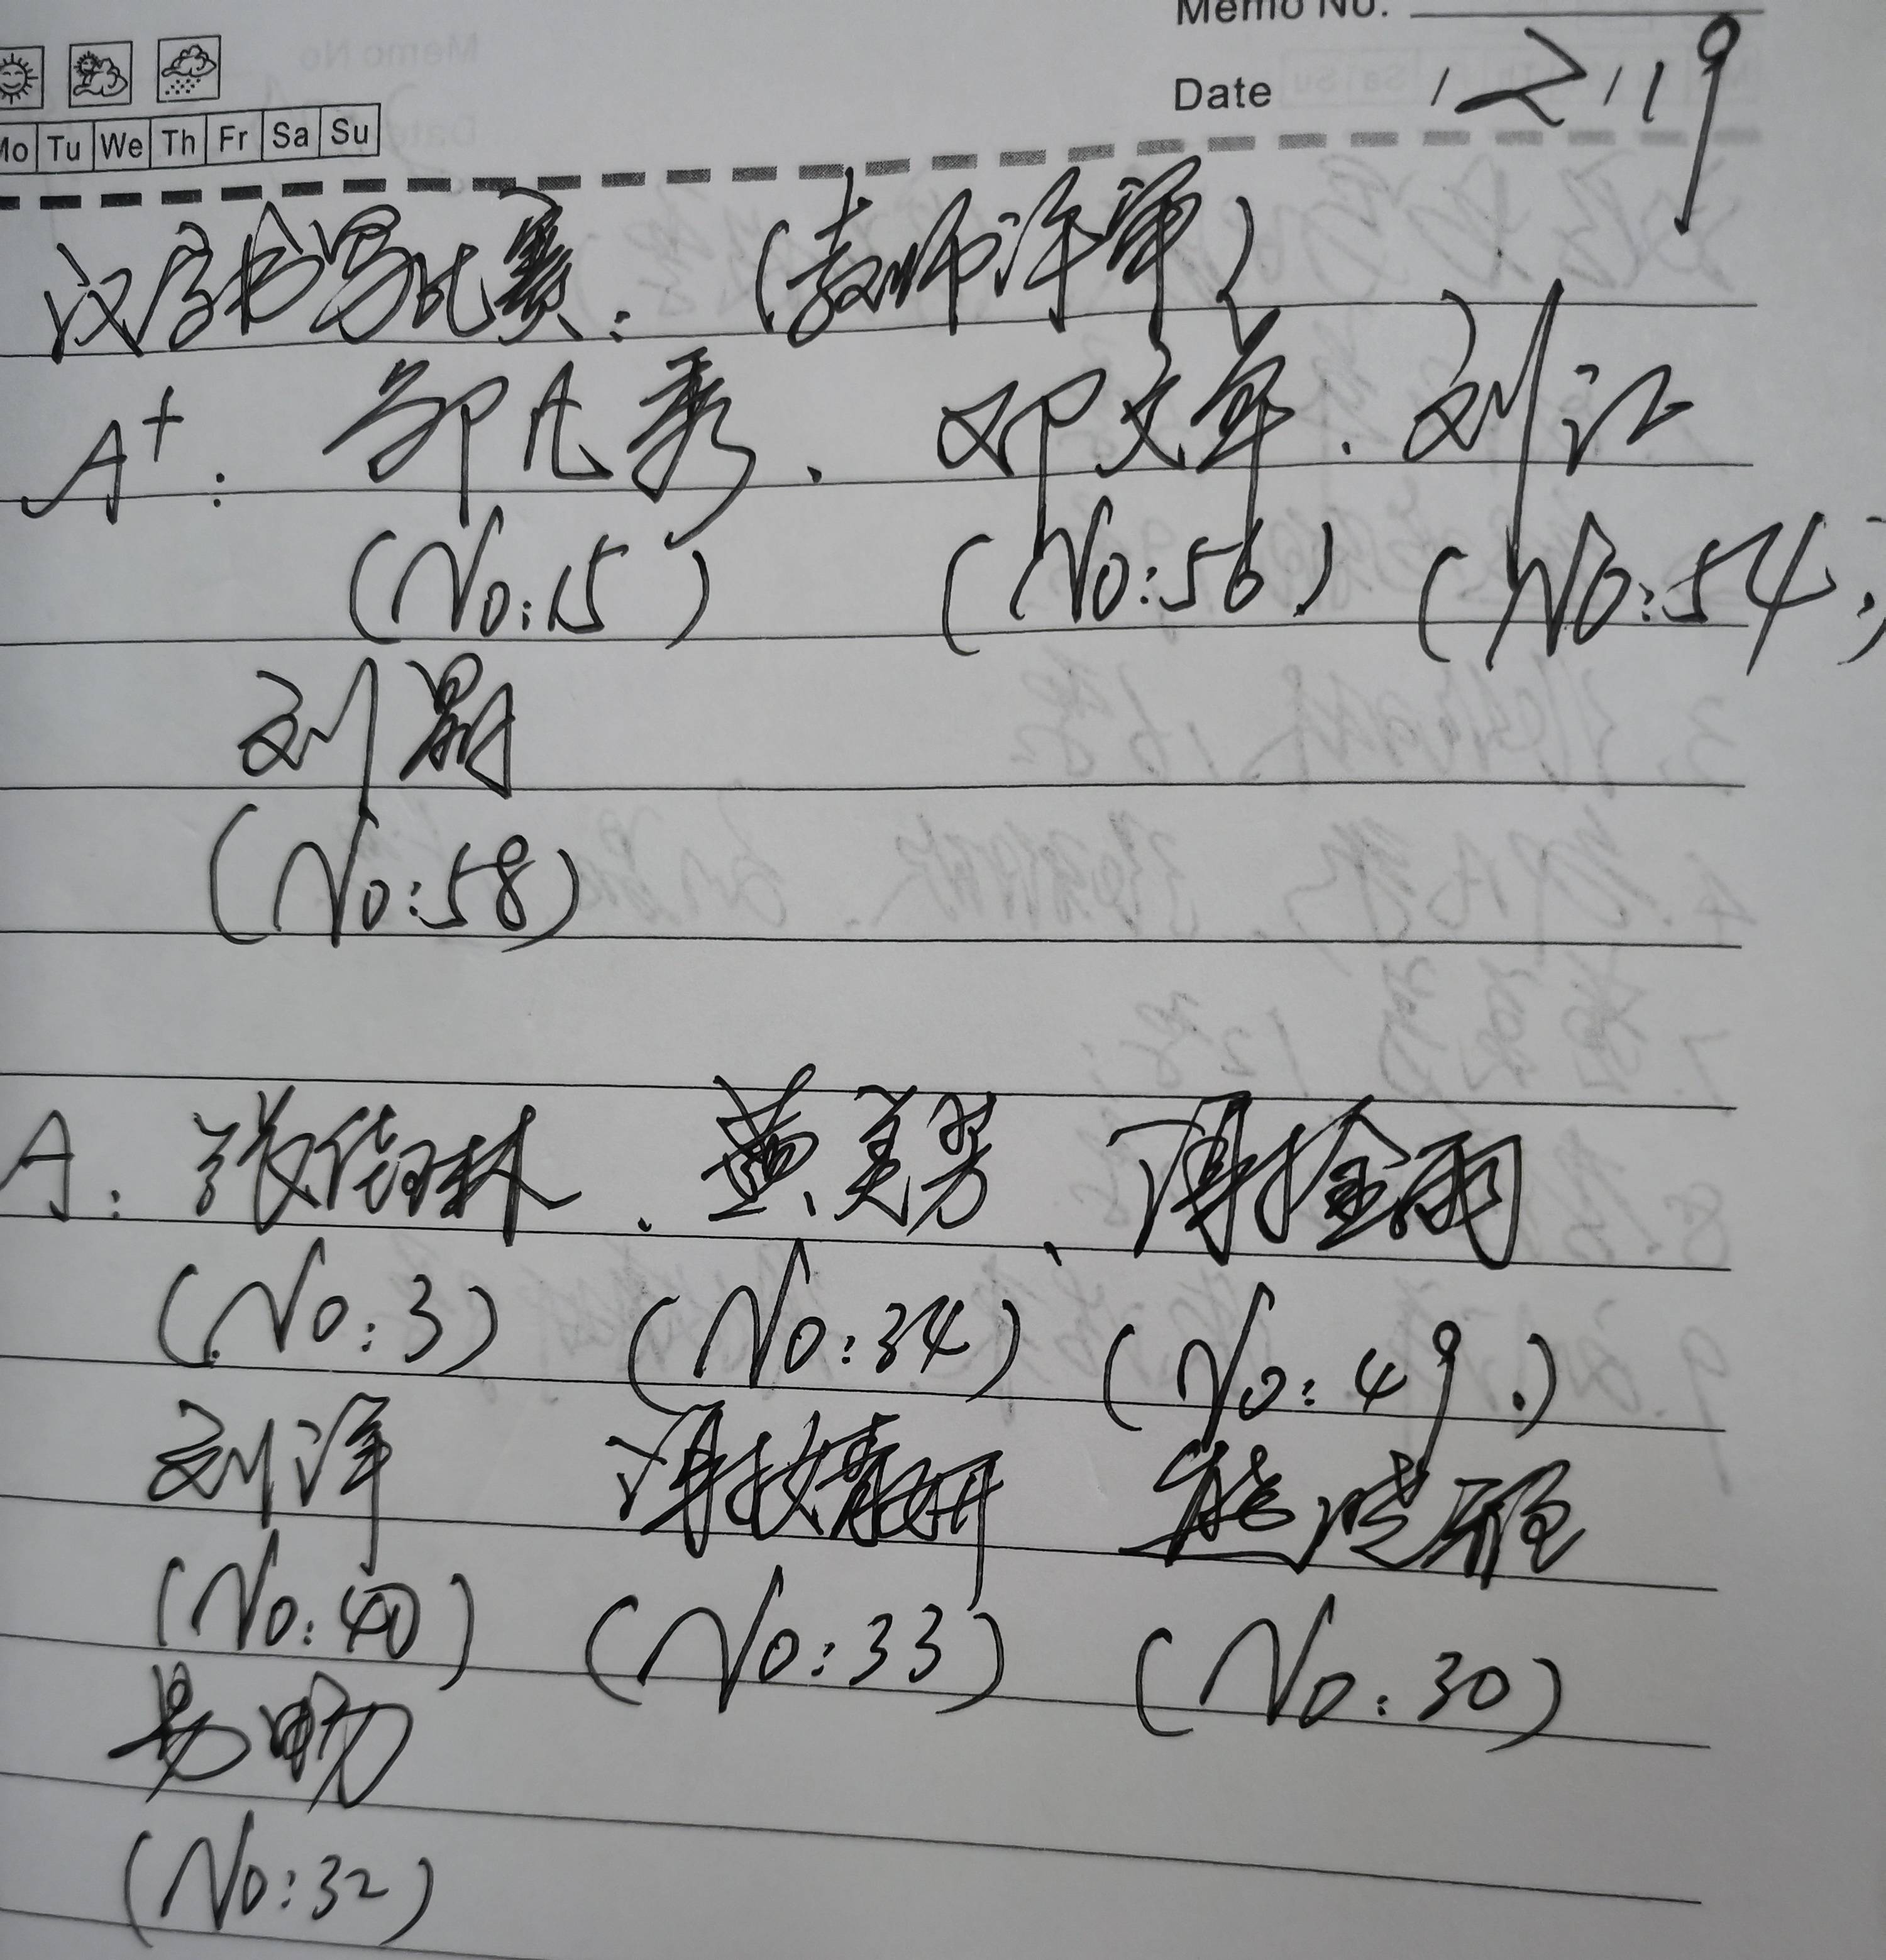 Memo No.
Date 12/19
Mo Tu We Th Fr Sa Su
汉字书写比赛：（教师评审）
A+： 邹凡秀、邓文军、刘江
（No:15） （No:56） （No:54）
刘鼎
（No:58）
A： 张倍琳、黄美芳、谭金雨
（No:3） （No:34） （No:49）
刘洋 谭婧妍 熊晓雅
（No:40） （No:33） （No:30）
易畅
（No:32）